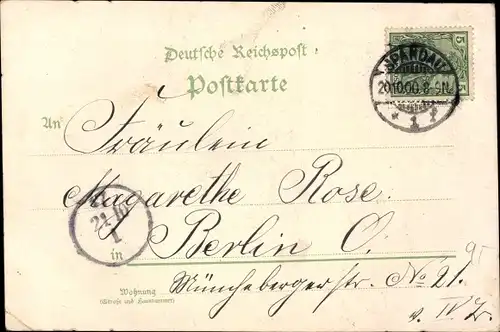 Deutsche Reichspost
Postkarte
5
5
SPANDAU
20.10.00. 8-9N.
* 1 *
An
Fräulein
Magarethe Rose.
21/10
1
in
Berlin O.
Münchebergerstr. No 21.
95
v. IV Tr.
Wohnung
(Straße und Hausnummer)